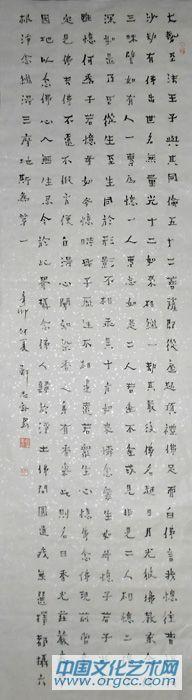 大勢至法王子與其同倫五十二菩薩即從座起頂禮佛足而白佛言我憶往昔恒河
沙劫有佛出世名無量光十二如來相繼一劫其最後佛名超日月光彼佛教我念佛
三昧譬如有人一專為憶一人專忘如是二人若逢不逢或見非見二人相憶二憶念
深如是乃至從生至生同於形影不相乖異十方如來憐念眾生如母憶子若子逃逝
雖憶何為子若憶母如母憶時母子歷生不相違遠若眾生心憶佛念佛現前當來必
定見佛去佛不遠不假方便自得心開如染香人身有香氣此則名曰香光莊嚴我本
因地以念佛心入無生忍今於此界攝念佛人歸於淨土佛問圓通我無選擇都攝六
根淨念相繼得三摩地斯為第一
辛卯仲夏
中国文化艺术网
www.orgcc.com